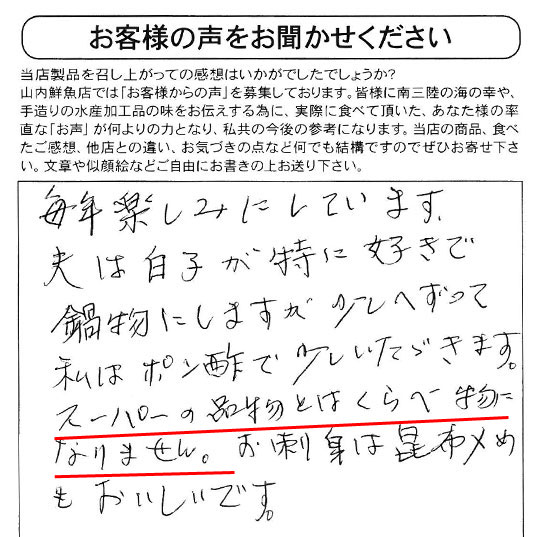 お客様の声をお聞かせください
当店製品を召し上がっての感想はいかがでしたでしょうか?
山内鮮魚店では「お客様からの声」を募集しております。皆様に南三陸の海の幸や、
手造りの水産加工品の味をお伝えする為に、実際に食べて頂いた、あなた様の率
直な「お声」が何よりの力となり、私共の今後の参考になります。当店の商品、食べ
たご感想、他店との違い、お気づきの点など何でも結構ですのでぜひお寄せ下さ
い。文章や似顔絵などご自由にお書きの上お送り下さい。
毎年楽しみにしています。
夫は白子が特に好きで
鍋物にしますが少しへずって
私はポン酢で少しいただきます。
スーパーの品物とはくらべ物に
なりません。お刺身は昆布〆め
もおいしいです。